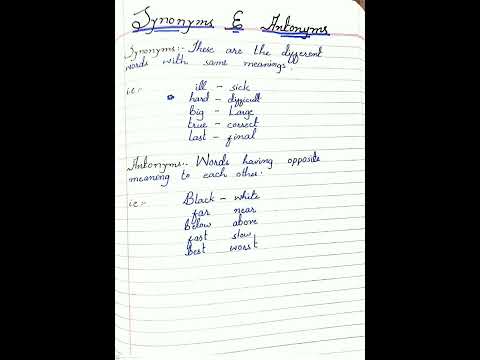 Synonyms & Antonyms
Synonyms:- These are the different
words with same meanings.
ie:-
ill - sick
hard - difficult
big - Large
true - correct
Last - final
Antonyms.. Words having opposite
meaning to each other.
ie:-
Black - white
far near
below above
fast slow
best worst